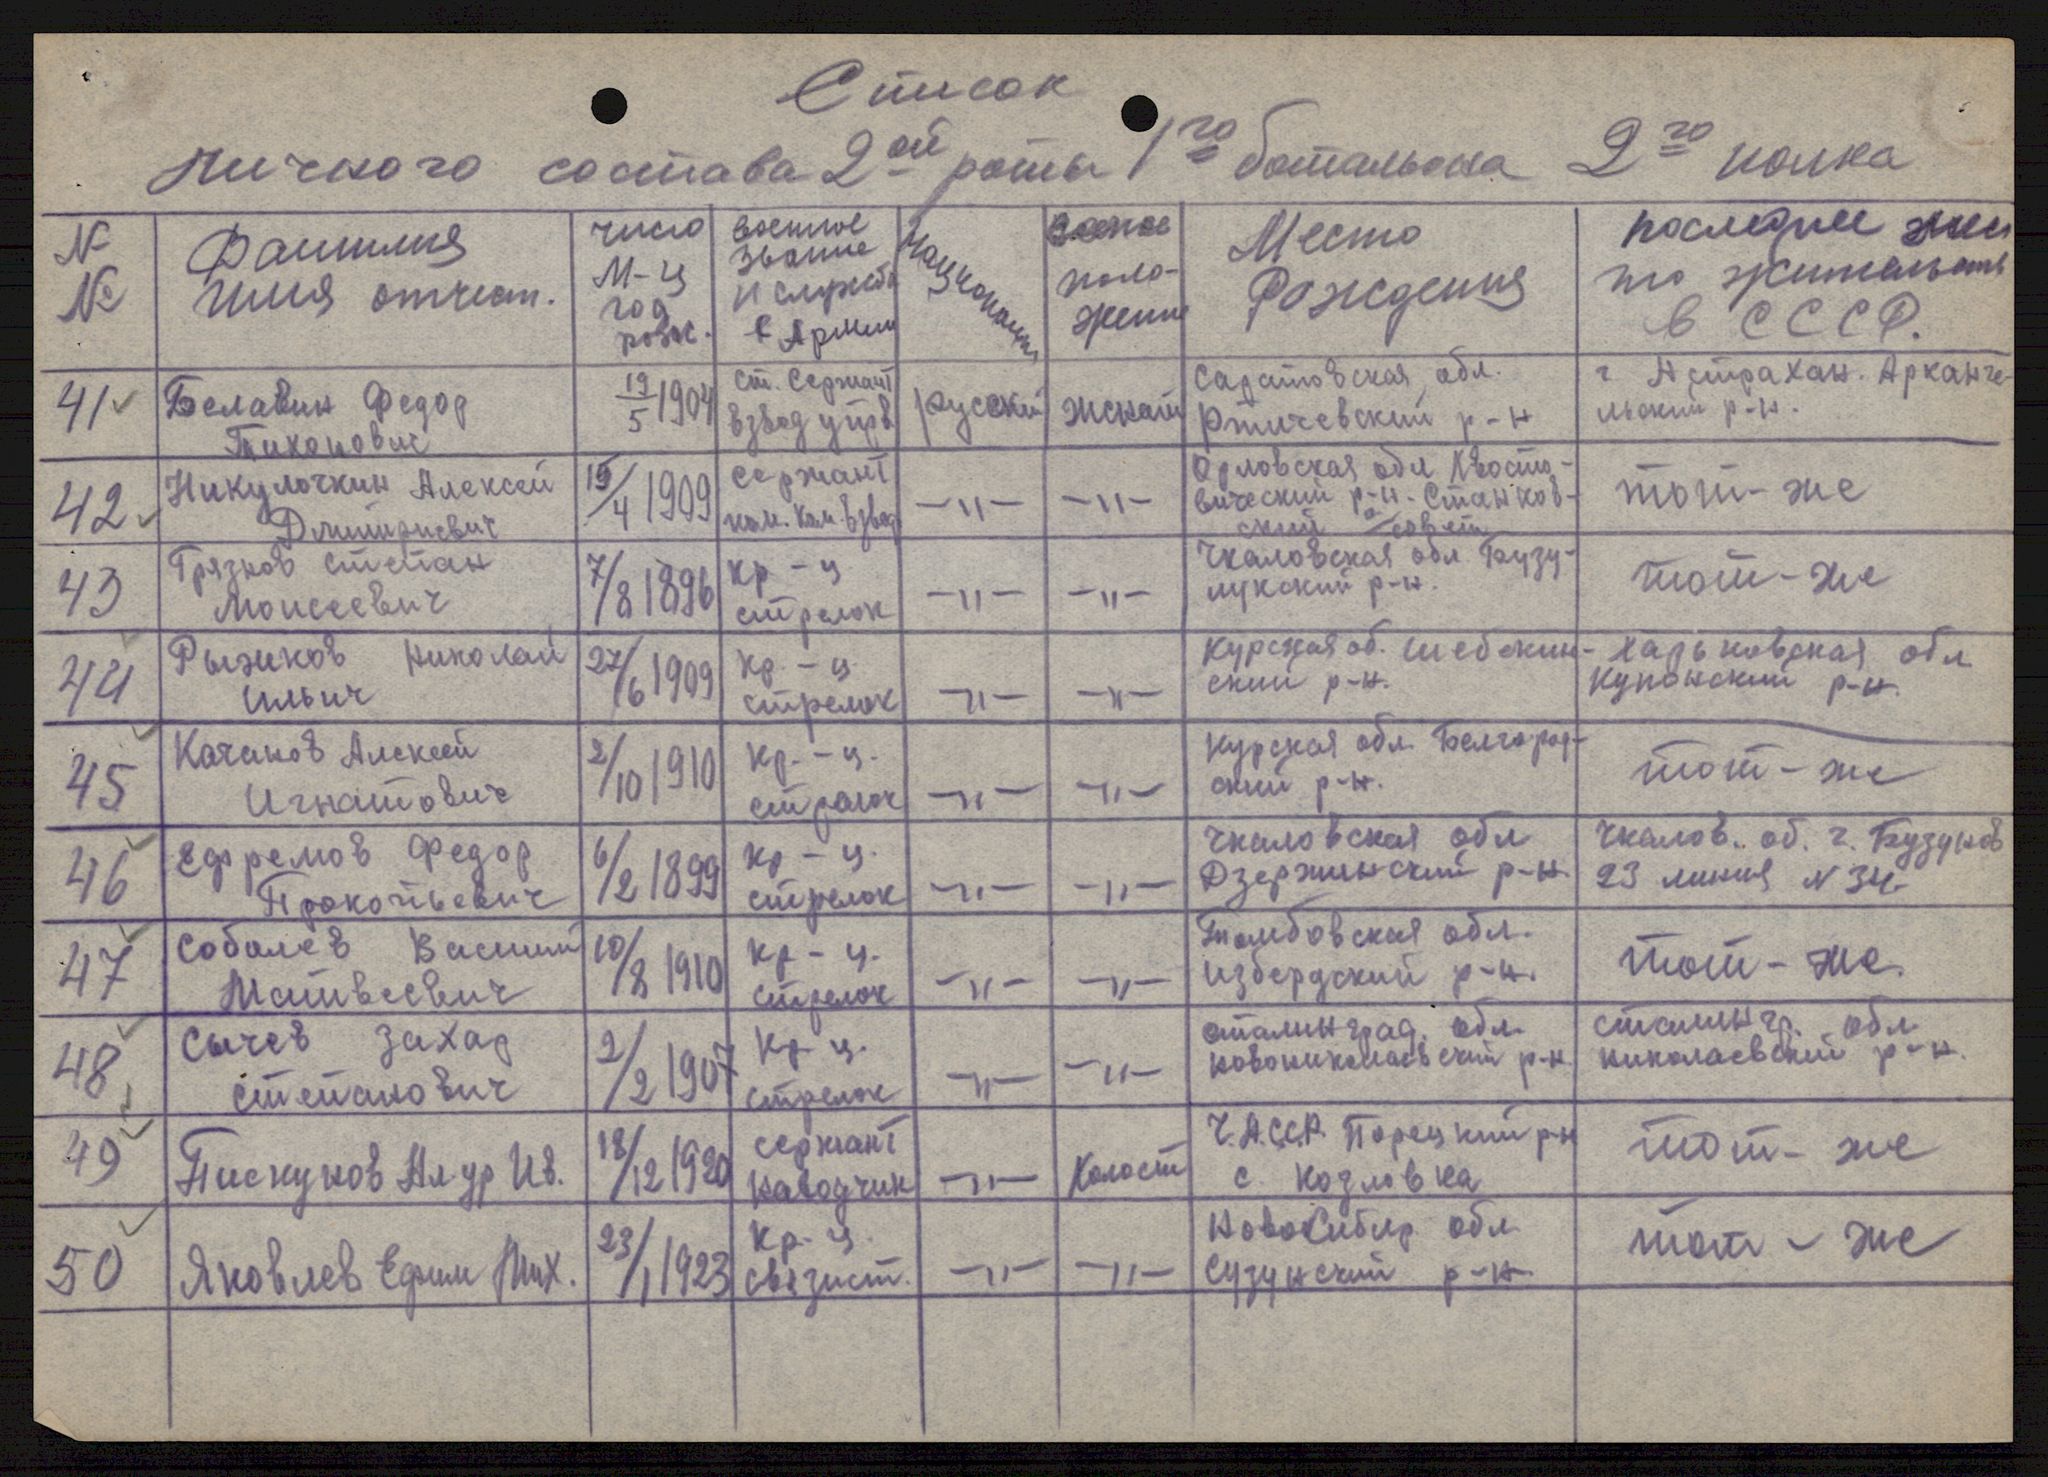 Список
Личного состава 2ой роты 1го батальона 2го полка
№ № Фамилия имя отчест. число м-ц год рожд. военное звание и служба в Армии национальн. поло-жение Место Рождения последнее мес то жительств в СССР.
41 Белавин Федор Тихонович 19/5 1904 ст. сержант взвод упр. русский женат Саратовская обл. Ртичевский р-н г Астрахан. Арканге-льский р-н.
42 Никулочкин Алексей Дмитриевич 15/4 1909 сержант пом. ком. взвод. -"- -"- Орловская обл Хвосто-вический р-н. Станков-ский с/совет тот-же
43 Грязнов Степан Моисеевич 7/8 1896 кр-ц стрелок -"- -"- Чкаловская обл Бузу-лукский р-н. тот-же
44 Рыжиков Николай Ильич 27/6 1909 кр.-ц. стрелок -"- -"- Курская об. Шебекин-ский р-н. Харьковская обл Купянский р-н.
45 Качанов Алексей Игнатович 2/10 1910 кр.-ц. стрелок -"- -"- Курская обл. Белгород-ский р-н. тот-же
46 Ефремов Федор Прокопьевич 6/2 1899 кр-ц. стрелок -"- -"- Чкаловская обл Дзержинский р-н. Чкалов. об. г. Бузулов 23 линия N 34.
47 Соболев Василий Матвеевич 10/8 1910 кр-ц. стрелок -"- -"- Тамбовская обл. Избердский р-н. тот-же.
48 Сычев Захар Степанович 2/2 1907 Кр-ц. стрелок -"- -"- Сталинград. обл. Новониколаевский р-н. Сталингр. обл. Николаевский р-н.
49 Пискунов Ал-др Ив. 18/12 1920 сержант наводчик -"- Холост Ч.А.С.С.Р. Порецкий р-н с. Козловка тот-же
50 Яковлев Ефим Мих. 23/1 1923 кр-ц. связист. -"- -"- Новосибир обл. Сузунский р-н. тот-же